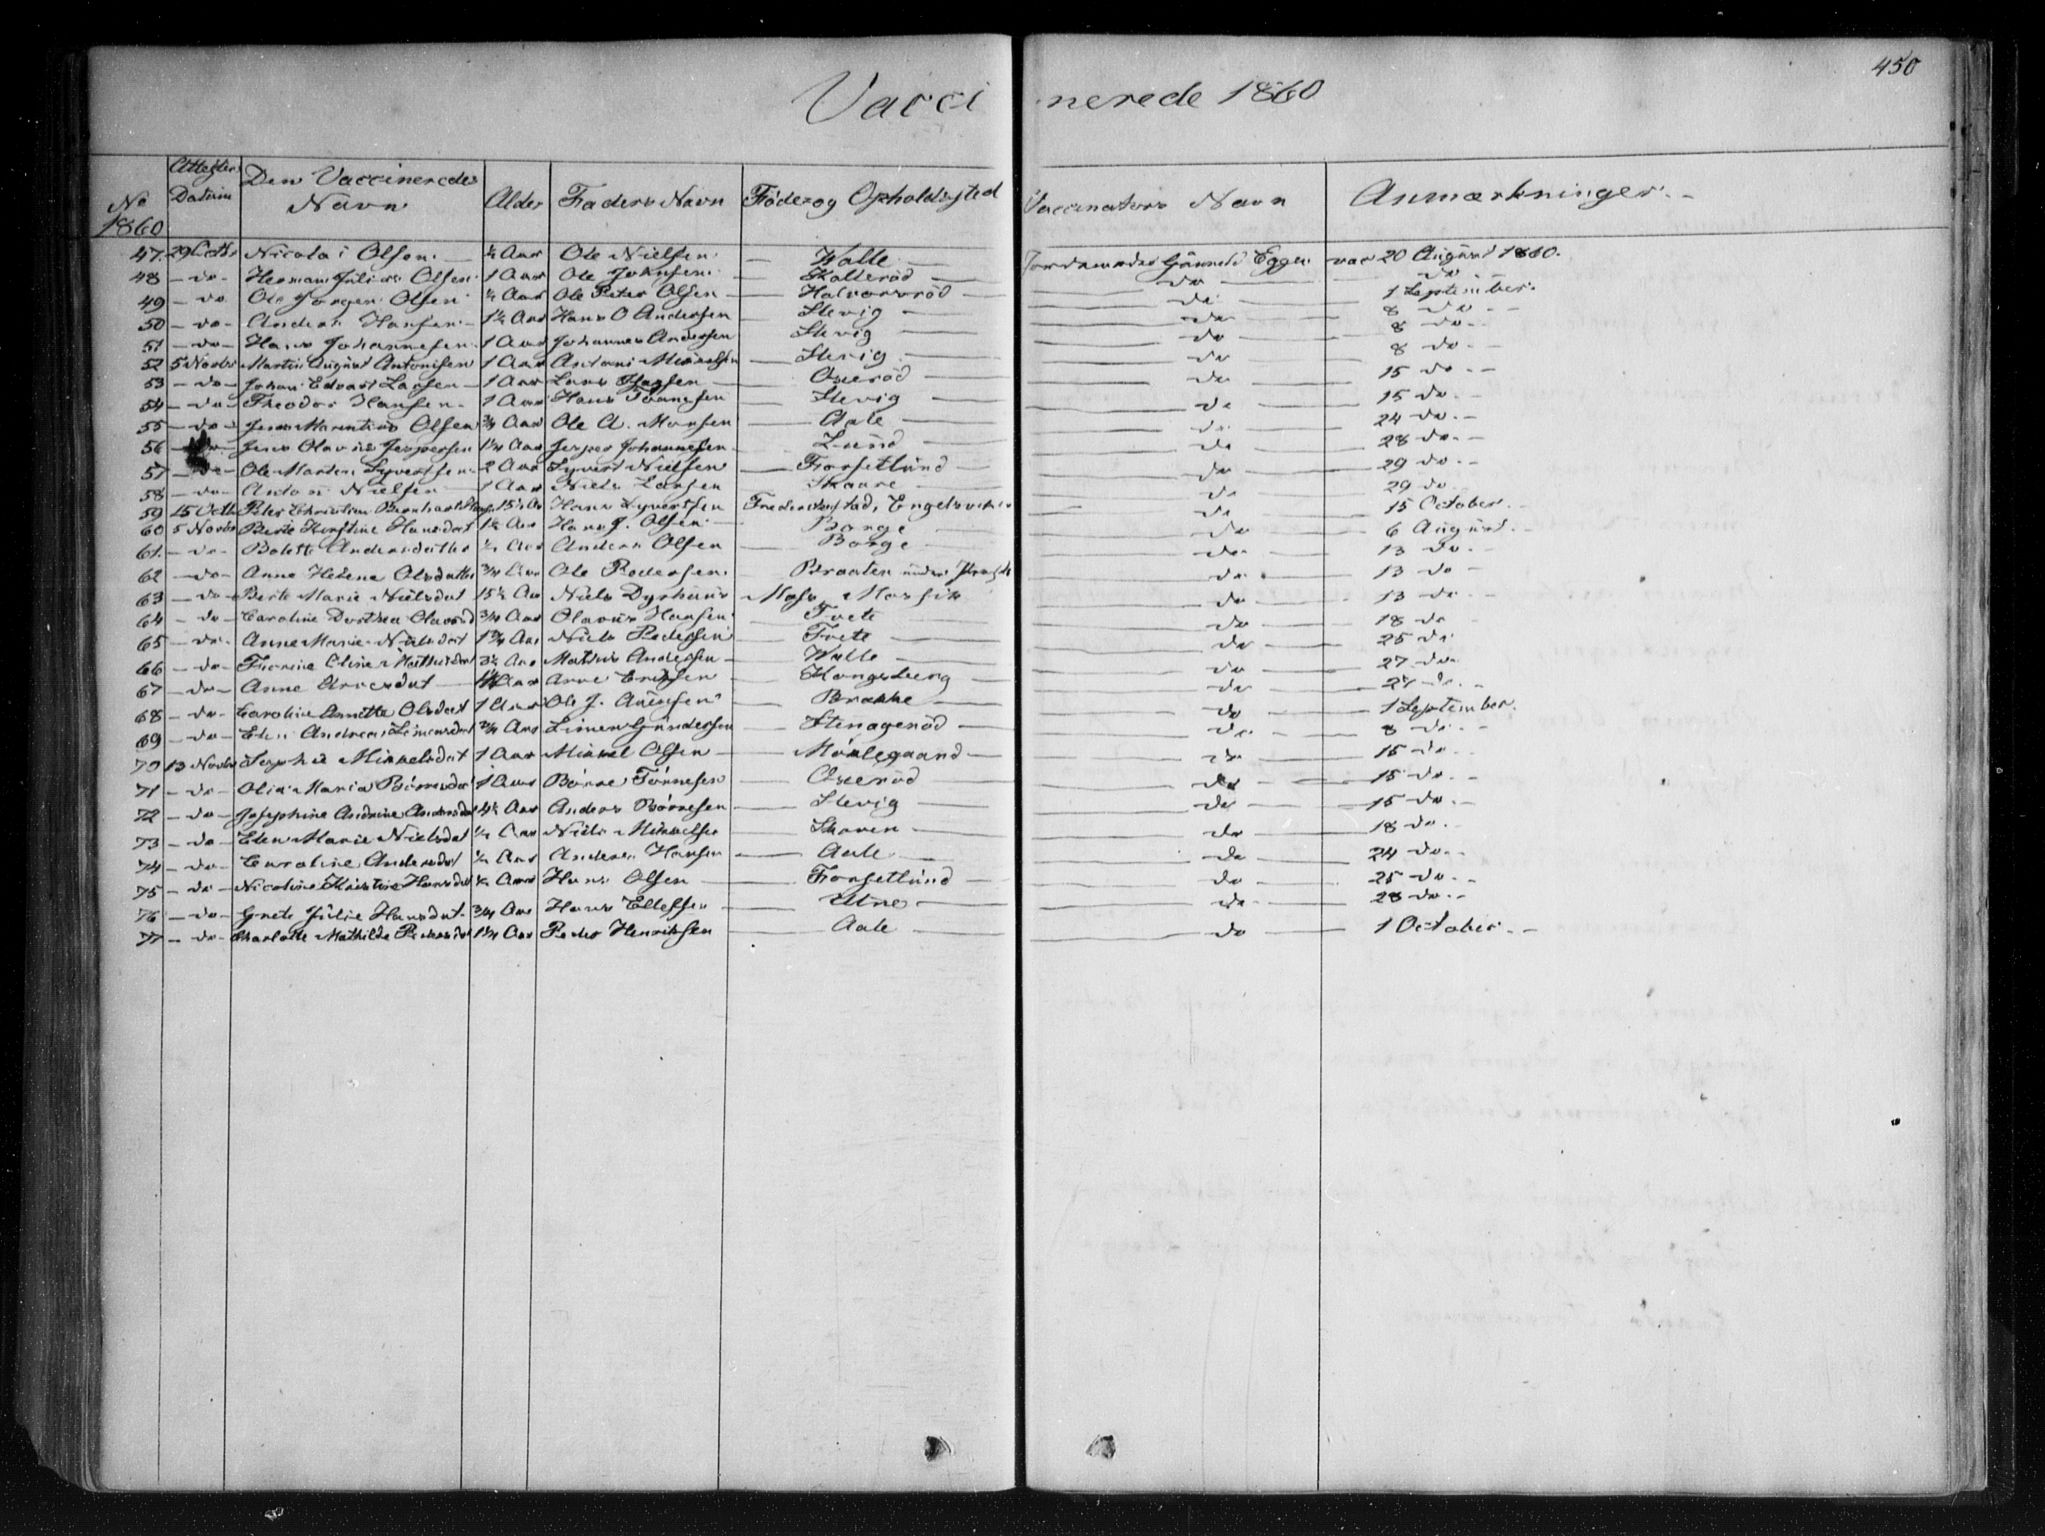 450
Vaccinerede 1860
No 1860 | Attester Datum | Den Vaccineredes Navn | Alder | Faders Navn | Föde og Opholdssted | Vaccinators Navn | Anmærkninger.
47. 29 Octbr Nicolai Olsen ½ Aar Ole Nielsen Walle Jordemoder Gunnild Eggen vac 20 August 1860.
48 do Herman Julius Olsen 1 Aar Ole Johnsen Skalleröd do do
49 do Ole Jörgen Olsen ½ Aar Ole Peter Olsen Halvorsröd do 1 September.
50 do Anders Hansen 1½ Aar Hans O Andersen Slevig do 8 do
51 do Hans Johannesen 1 Aar Johannes Andersen Slevig do 8 do
52 5 Novbr Martin August Antonisen 1 Aar Antoni Slevig do 8 do
53 do Johan Edvart Larsen 1 Aar Lars Oseröd do 15 do
54 do Theodor Hansen 1 Aar Hans Slevig do 15 do
55 do Jens Marentius Olsen ¾ Aar Ole A. Monsen Aale do 24 do
56 do Jens Olavus Jespersen 1¼ Aar Jesper Johannesen Lund do 28 do
57 do Ole Martin Syvertsen 2 Aar Syvert Nielsen Torsetlund do 29 do
58 do Anton Nielsen 1 Aar Niels Larsen Skaare do 29 do
59 15 Octb Peter Christian Bernhard 15½ Aar Hans Syvertsen Frederikstad, Engelsviken do 15 October.
60 5 Novbr Berte Kirstine Hansdat 1½ Aar Hans J. Olsen Borge do 6 August.
61. do Bolette Andersdatter ½ Aar Anders Olsen Borge do 13 do
62 do Anne Helene Olsdatter ¾ Aar Ole Pedersen Braaten under do 13 do
63 do Berte Marie Nielsdat 15½ Aar Niels Dyrhuus Moss do 13 do
64 do Caroline Dorthea Olavsd ¾ Aar Olavus Hansen Tvete do 18 do
65 do Anne Marie Nielsdat 1¾ Aar Niels Pedersen Tvete do 25 do
66 do Oline Mathisdat 3½ Aar Mathis Andersen Walle do 27 do
67 do Anne Arnesdat Aar Arne Ericksen Kongsberg do 27 do
68 do Caroline Annette Olsdat 1 Aar Ole J. Brække do 1 September.
69 do Elen Andrea Simensdat ¾ Aar Simen Gundersen Stenageröd do 8 do
70 13 Novbr Sophie Mikkelsdat 1 Aar Mikkel Olsen Mörlegaard do 15 do
71 do Olia Maria Börresdat 1 Aar Börre Tönnesen Oseröd do 15 do
72 do Josephine Andrine Andersdat 4½ Aar Anders Börresen Slevig do 15 do
73 do Elen Marie Nielsdat ½ Aar Niels Mikkelsen Skoven do 18 do
74 do Caroline Andersdat ½ Aar Anders Hansen Aale do 24 do
75 do Nicoline Kirstine Hansdat ½ Aar Hans Olsen Torsetlund do 25 do
76 do Grete Julie Hansdat ¾ Aar Hans Ellefsen Utne do 28 do
77 do Charlotte Mathilde Pedersdat 1¼ Aar Peder Henriksen Aale do 1 October.